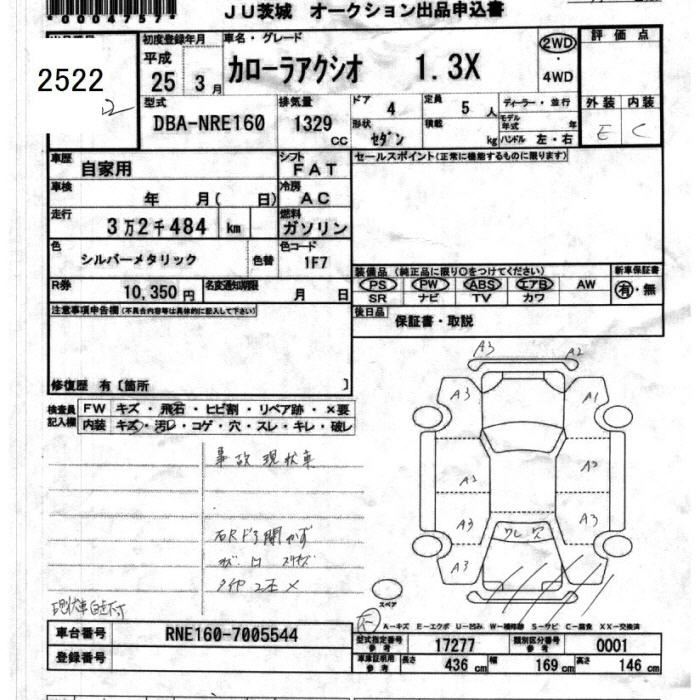 *0004757*
JU茨城 オークション出品申込書
2522
初度登録年月 車名・グレード
平成 25 3月
カローラアクシオ 1.3X
2WD・4WD
評価点
外装 内装
E C
型式 DBA-NRE160
排気量 1329 CC
ドア 4
定員 5 人
形状 セダン
積載 kg
ディーラー・並行
モデル年式 年
ハンドル 左・右
車歴 自家用
シフト FAT
セールスポイント(正常に機能するものに限ります)
車検 年 月( 日)
冷房 AC
走行 3万2千484 km
燃料 ガソリン
色 シルバーメタリック 色替
色コード 1F7
装備品(純正品に限り○をつけてください)
PS PW ABS エアB AW
SR ナビ TV カワ
新車保証書
有・無
R券 10,350円
名変通知期限 月 日
後日品 保証書・取説
注意事項申告欄(不具合内容等は具体的に記入して下さい)
修復歴 有〔箇所 〕
検査員記入欄
FW キズ・飛石・ヒビ割・リペア跡・×要
内装 キズ・汚レ・コゲ・穴・スレ・キレ・破レ
事故現状車
右Rドア開かず
タイヤ2本×
現状車自走不可
A3 A2
A3 A1
A2 A2
A3 A3
ワレ 穴
A3
スペア
A-キズ E-エクボ U-凹み W-補修跡 S-サビ C-腐食 XX-交換済
車台番号 RNE160-7005544
登録番号
型式指定番号 参考 17277
類別区分番号 参考 0001
車庫証明用 参考 長さ 436 cm 幅 169 cm 高さ 146 cm